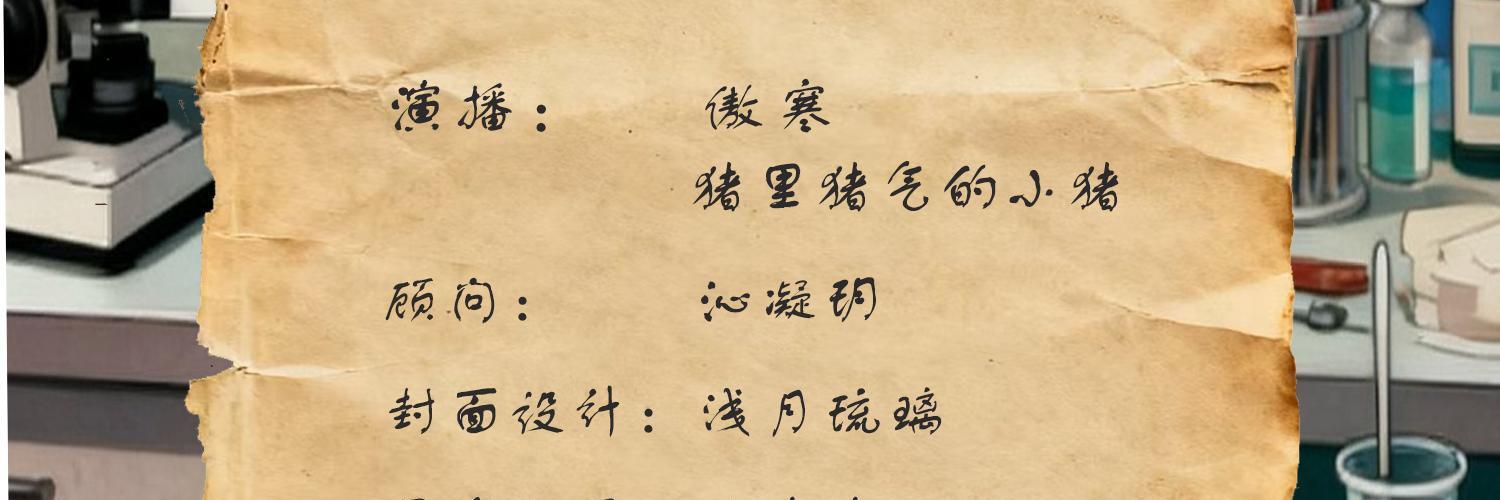 演播： 傲寒
猪里猪气的小猪
顾问： 沁凝玥
封面设计： 浅月琉璃